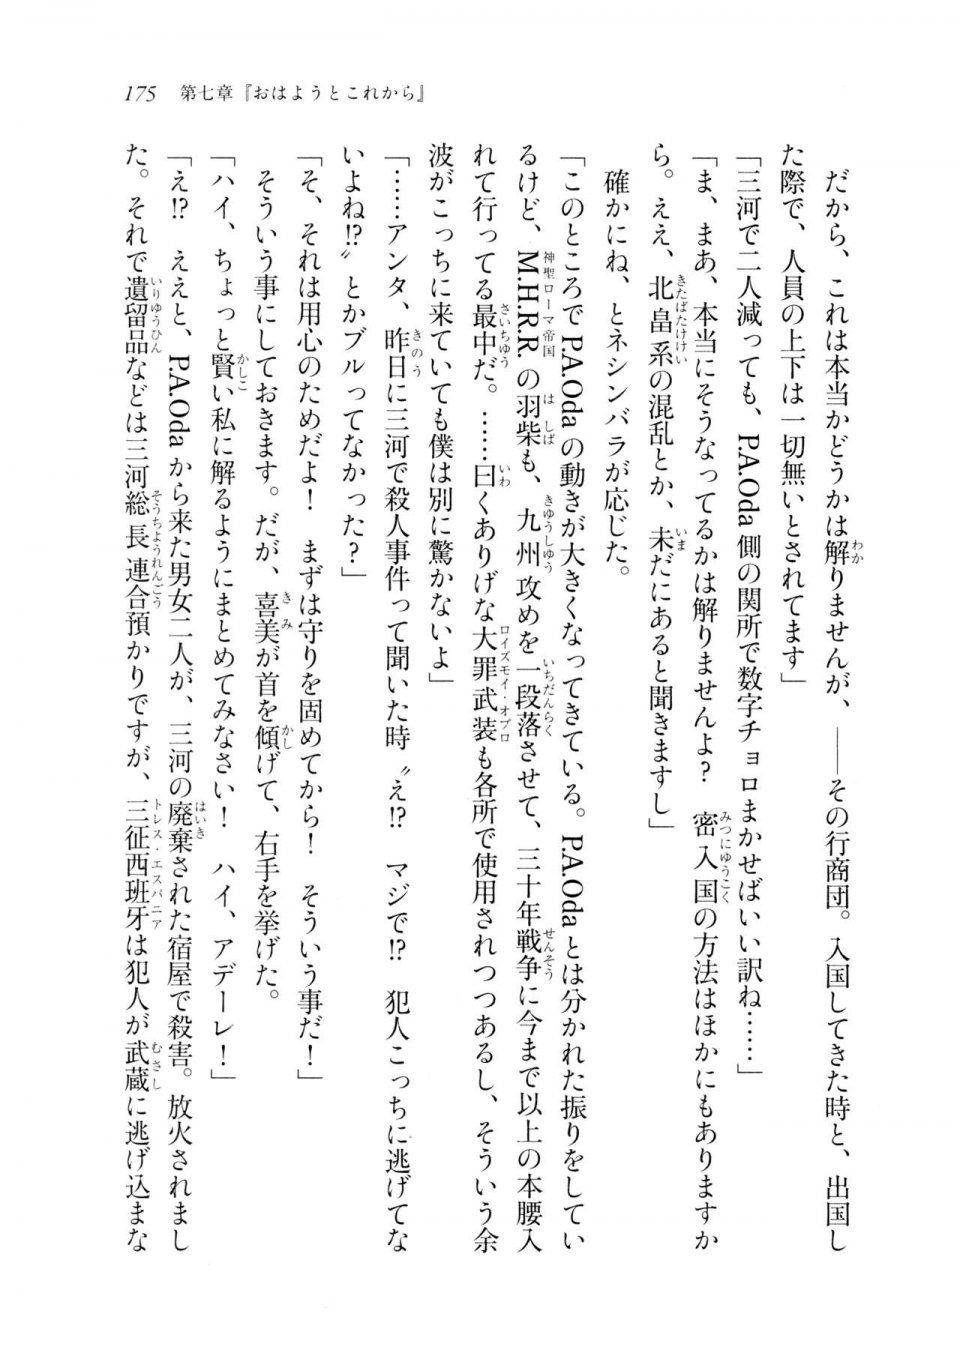 175　第七章『おはようとこれから』
　だから、これは本当かどうかは解りませんが、――その行商団。入国してきた時と、出国し
た際で、人員の上下は一切無いとされてます」
「三河で二人減っても、P.A.Oda側の関所で数字チョロまかせばいい訳ね……」
「ま、まあ、本当にそうなってるかは解りませんよ？　密入国の方法はほかにもありますか
ら。ええ、北畠系の混乱とか、未だにあると聞きますし」
　確かにね、とネシンバラが応じた。
「このところでP.A.Odaの動きが大きくなってきている。P.A.Odaとは分かれた振りをしてい
るけど、M.H.R.R.の羽柴も、九州攻めを一段落させて、三十年戦争に今まで以上の本腰入
れて行ってる最中だ。……曰くありげな大罪武装も各所で使用されつつあるし、そういう余
波がこっちに来ていても僕は別に驚かないよ」
「……アンタ、昨日に三河で殺人事件って聞いた時〝え!?　マジで!?　犯人こっちに逃げてな
いよね!?〟とかブルってなかった？」
「そ、それは用心のためだよ！　まずは守りを固めてから！　そういう事だ！」
　そういう事にしておきます。だが、喜美が首を傾げて、右手を挙げた。
「ハイ、ちょっと賢い私に解るようにまとめてみなさい！　ハイ、アデーレ！」
「え!?　ええと、P.A.Odaから来た男女二人が、三河の廃棄された宿屋で殺害。放火されまし
た。それで遺留品などは三河総長連合預かりですが、三征西班牙は犯人が武蔵に逃げ込まな